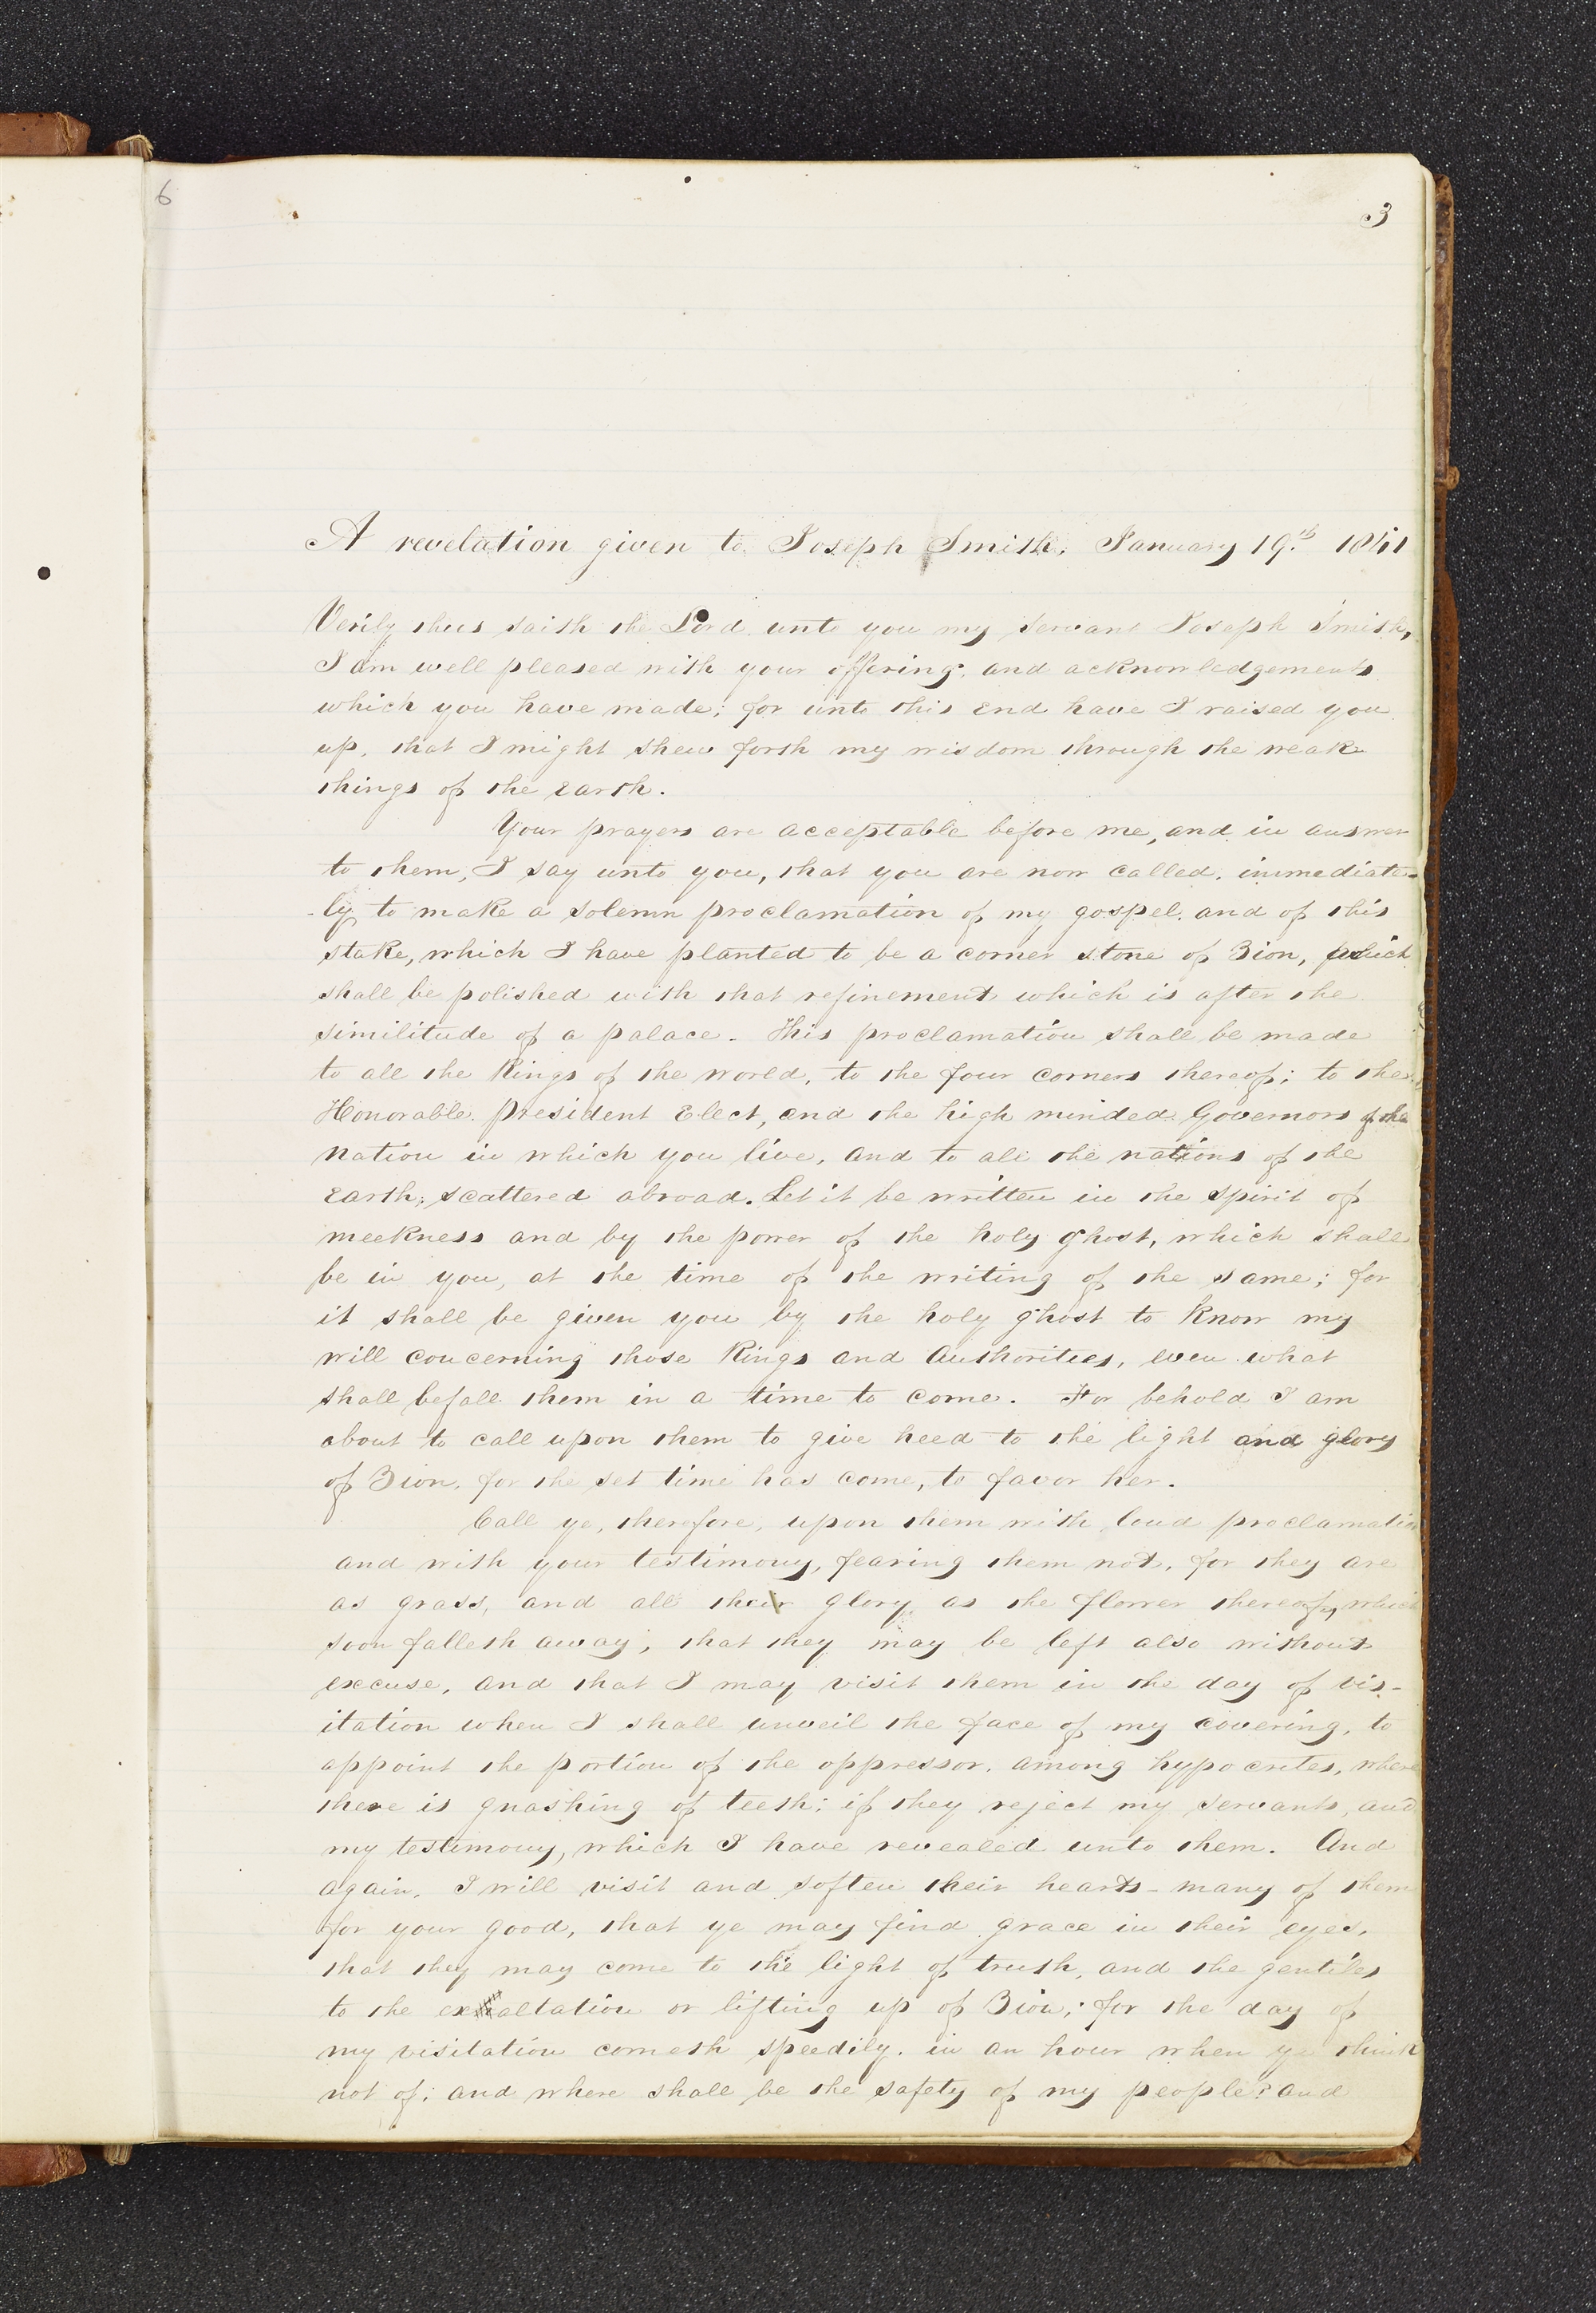 6
3
A revelation given to Joseph Smith, January 19th 1841
Verily thus saith the Lord unto you my servant Joseph Smith,
I am well pleased with your offering, and acknowledgements
which you have made; for unto this end have I raised you
up, that I might shew forth my wisdom through the weak
things of the earth.
Your prayers are acceptable before me, and in answer
to them, I say unto you, that you are now called, immediate-
-ly to make a solemn proclamation of my gospel, and of this
stake, which I have planted to be a corner stone of Zion, which
shall be polished with that refinement which is after the
similitude of a palace. This proclamation shall be made
to all the Kings of the world, to the four corners thereof; to the
Honorable President Elect, and the high minded Governors of the
nation in which you live, and to all the nations of the
earth, scattered abroad. Let it be written in the spirit of
meekness and by the power of the holy ghost, which shall
be in you, at the time of the writing of the same; for
it shall be given you by the holy ghost to know my
will concerning those Kings and Authorities, even what
shall befall them in a time to come. For behold I am
about to call upon them to give heed to the light and glory
of Zion, for the set time has come, to favor her.
Call ye, therefore, upon them with loud proclamation
and with your testimony, fearing them not, for they are
as grass, and all their glory as the flower thereof, which
soon falleth away; that they may be left also without
excuse, and that I may visit them in the day of vis-
itation when I shall unveil the face of my covering, to
appoint the portion of the oppressor, among hypocrites, where
there is gnashing of teeth; if they reject my servants, and
my testimony, which I have revealed unto them. And
again, I will visit and soften their hearts - many of them
for your good, that ye may find grace in their eyes,
that they may come to the light of truth, and the gentiles
to the exaltation or lifting up of Zion; for the day of
my visitation cometh speedily, in an hour when ye think
not of; and where shall be the safety of my people? and